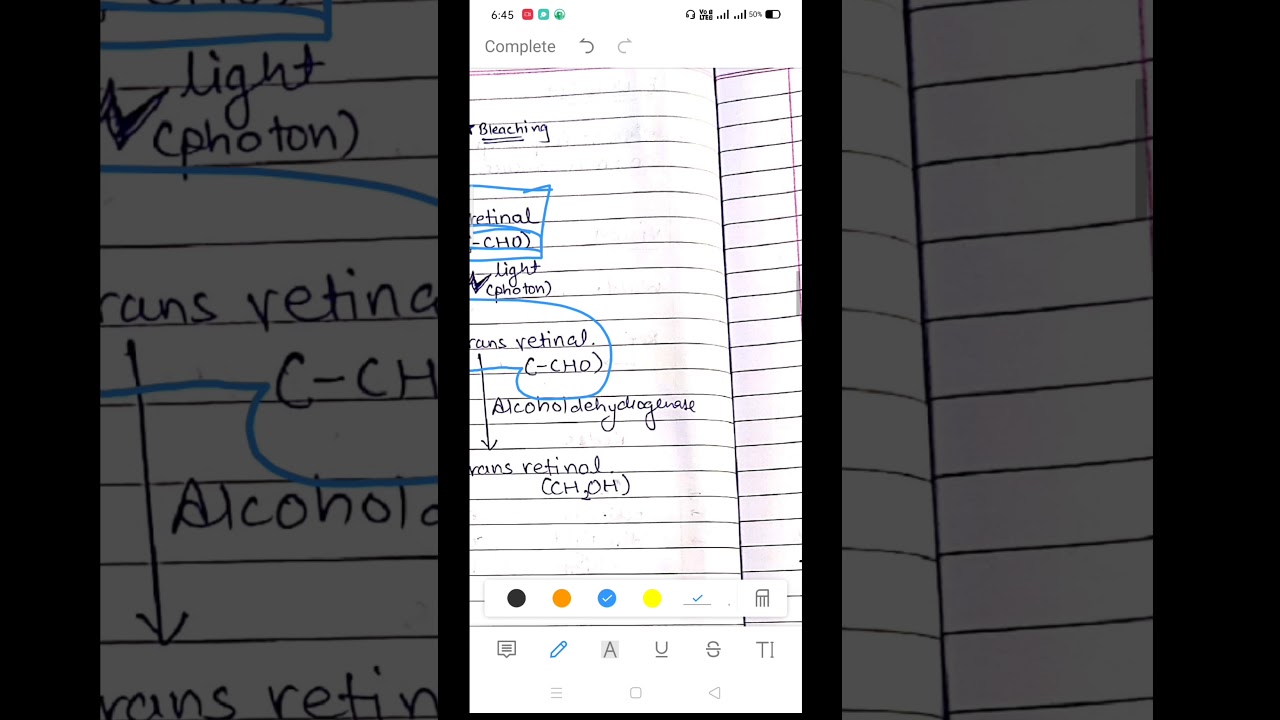 6:45
50%
Complete
Bleaching
retinal
-CHO)
light
(photon)
rans retinal.
C-CHO)
Alcoholdehydrogenase
rans retinol.
(CH₂OH)
A
U
S
TI
light
(photon)
rans retina
C-CH
Alcohold
rans retin